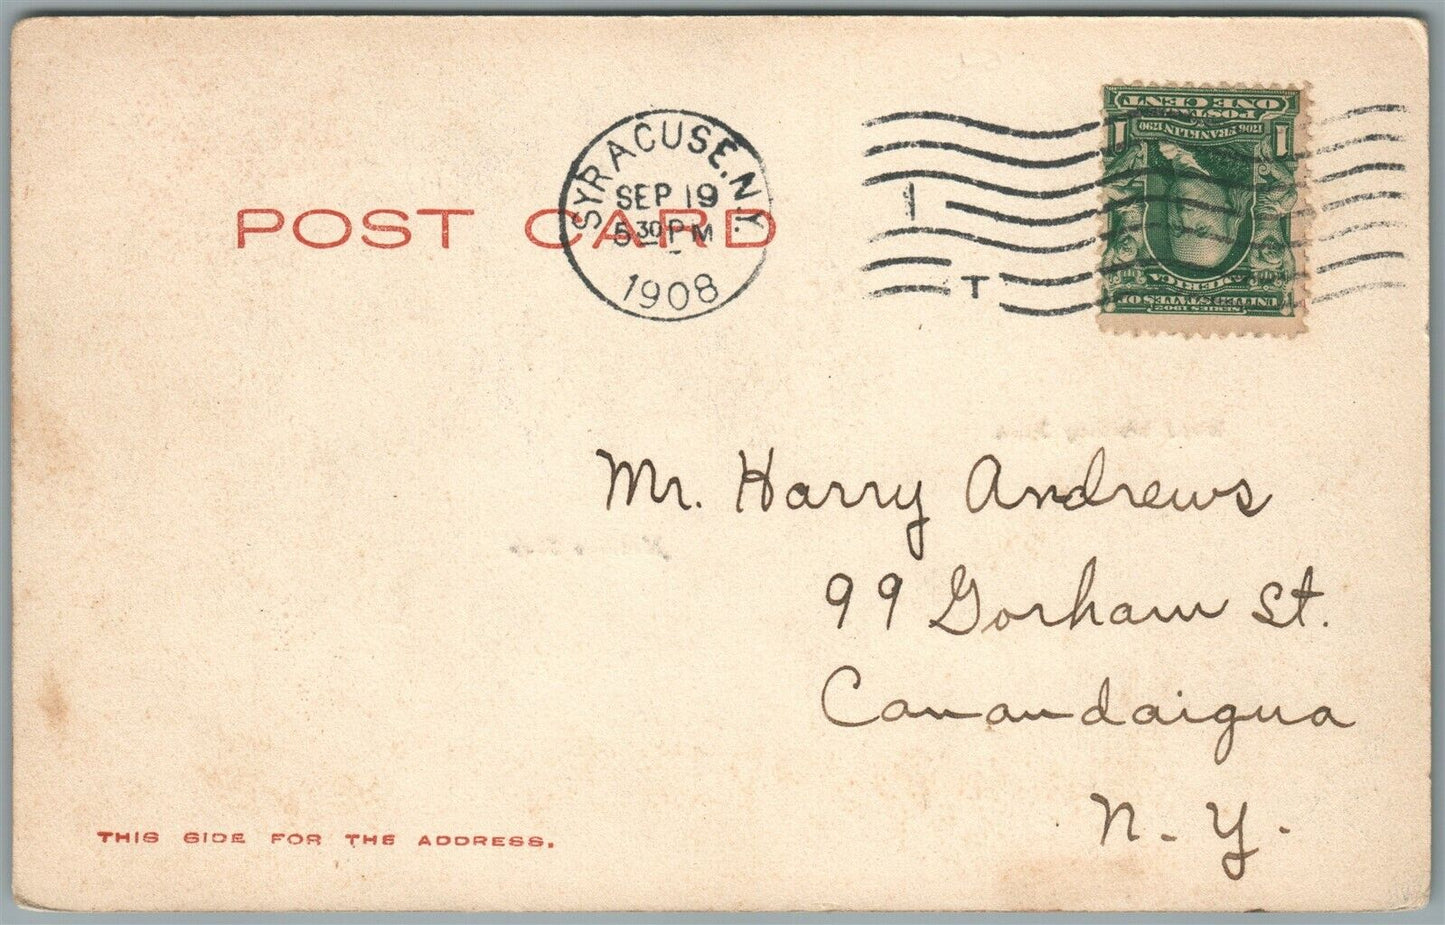 POST CARD
SYRACUSE, N.Y.
SEP 19
5 30 PM
1908
1
T
SERIES 1902
UNITED STATES OF
AMERICA
1706 FRANKLIN 1790
1 1
POSTAGE
ONE CENT
Mr. Harry Andrews
99 Gorham St.
Canandaigua
N. Y.
THIS SIDE FOR THE ADDRESS.